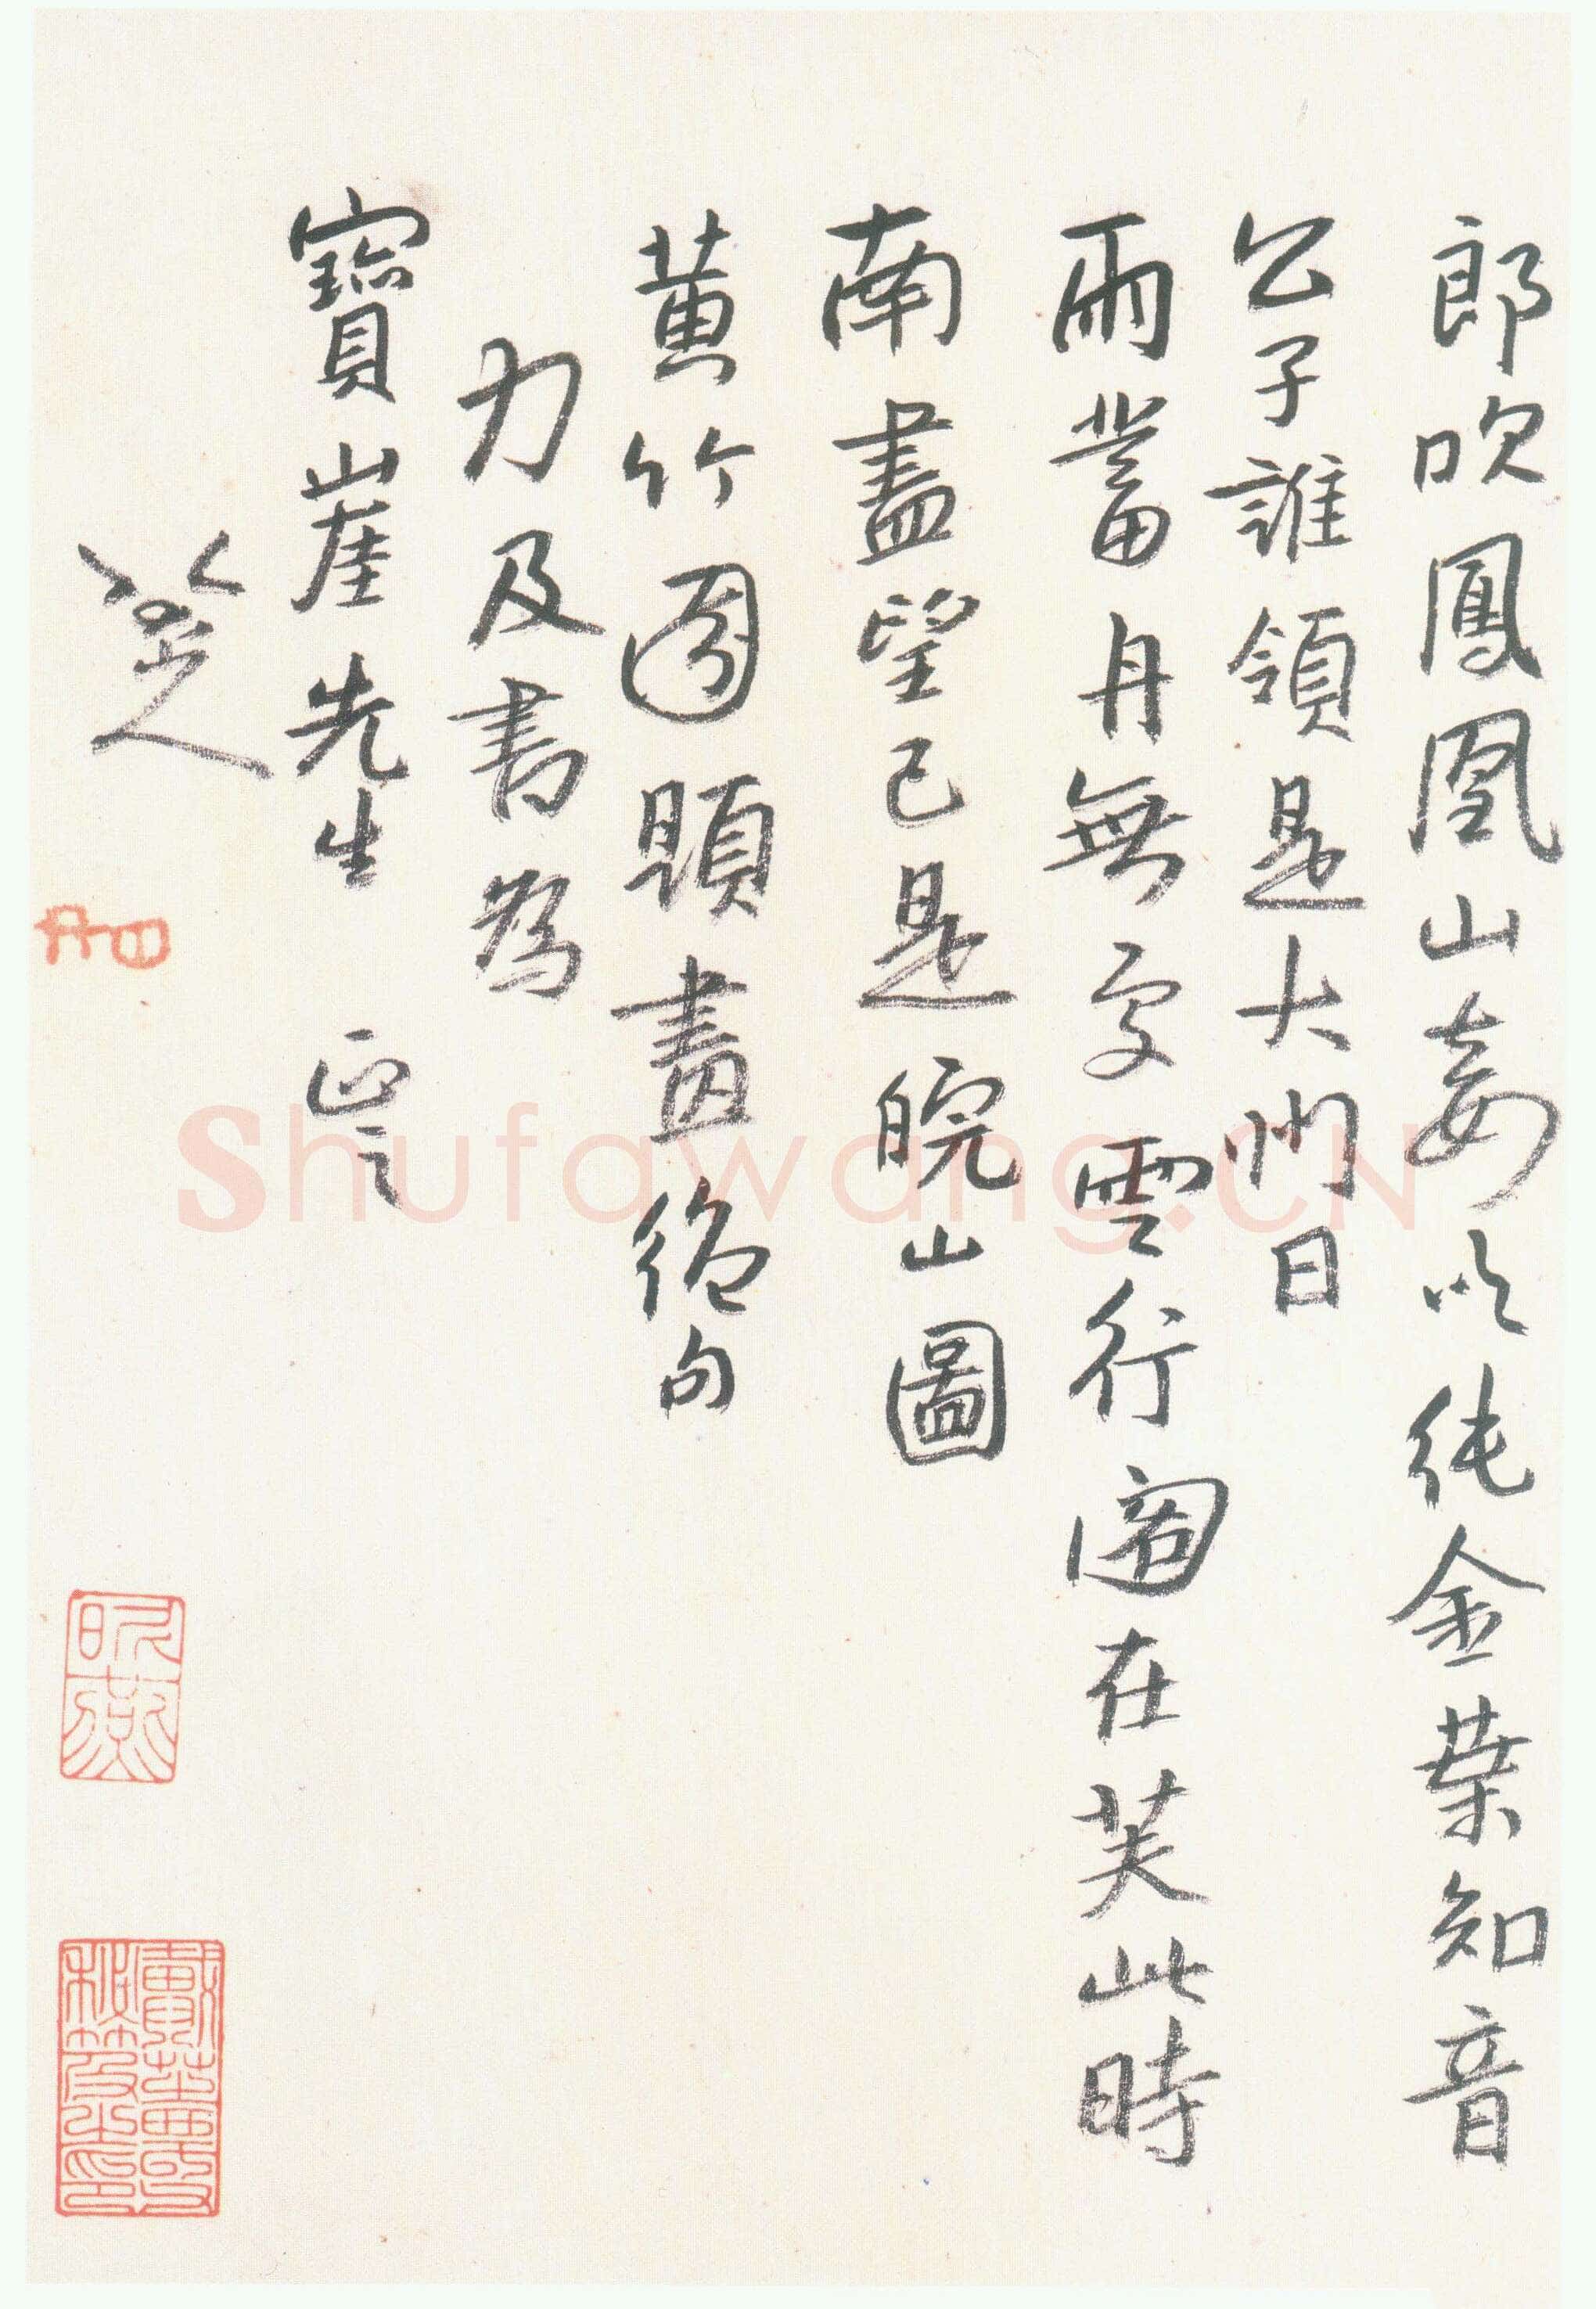 郎吹鳳凰山妾以純金葉知音
公子誰領是大州日
雨蓄舟無處雲行閣在芙此時
南盡望已是皖山圖
黃竹園題畫絕句
力及書為
寶崖先生 正之
八大山人
Shufawang.CN